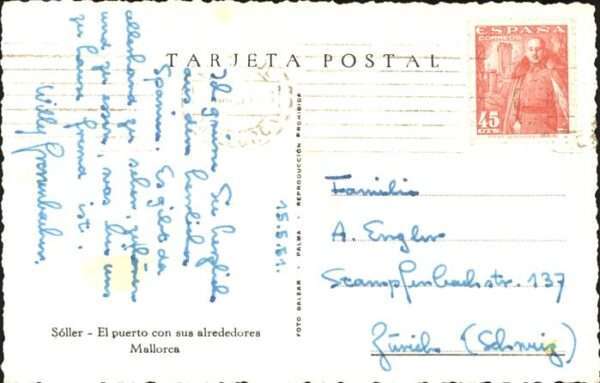 TARJETA POSTAL
ESPAÑA
CORREOS
45
CTS
Ich grüsse Sie herzlich
aus dem herrlichen
Spanien. Es gibt da
allerhand zu sehen, zu hören
und zu essen, was bei uns
zu hause fremd ist.
Willy
15.5.51.
FOTO BALEAR - PALMA - REPRODUCCIÓN PROHIBIDA
Familie
A. Engler
Stampfenbachstr. 137
Zürich (Schweiz)
Sóller - El puerto con sus alrededores
Mallorca